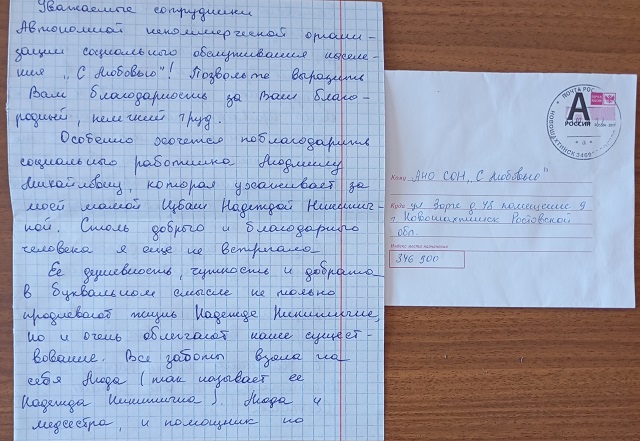 Уважаемые сотрудники
Автономной некоммерческой органи-
зации социального обслуживания населе-
ния „С Любовью"! Позвольте выразить
Вам благодарность за Ваш благо-
родный, нелегкий труд.
Особенно хочется поблагодарить
социального работника Людмилу
Михайловну, которая ухаживает за
моей мамой Цубан Надеждой Никитич-
ной. Столь доброго и благодарного
человека я еще не встречала
Ее душевность, чуткость и доброта
в буквальном смысле не только
продлевают жизнь Надежде Никитичне,
но и очень облегчают наше сущест-
вование. Все заботы взяла на
себя Люда (так называет ее
Надежда Никитична). Люда и
медсестра, и помощник по
ПОЧТА РОС
А
РОССИЯ
НОВОШАХТИНСК 3469
Кому АНО СОН „С Любовью"
Куда ул Зорге д 45 помещение 9
г Новошахтинск Ростовской
обл.
Индекс места назначения
346 900